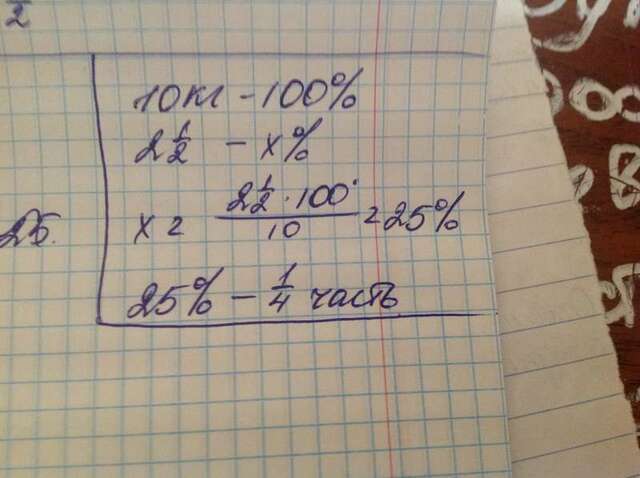 1/2
10 кг – 100%
2 1/2 – x%
25.
x = (2 1/2 · 100) / 10 = 25%
25% – 1/4 часть